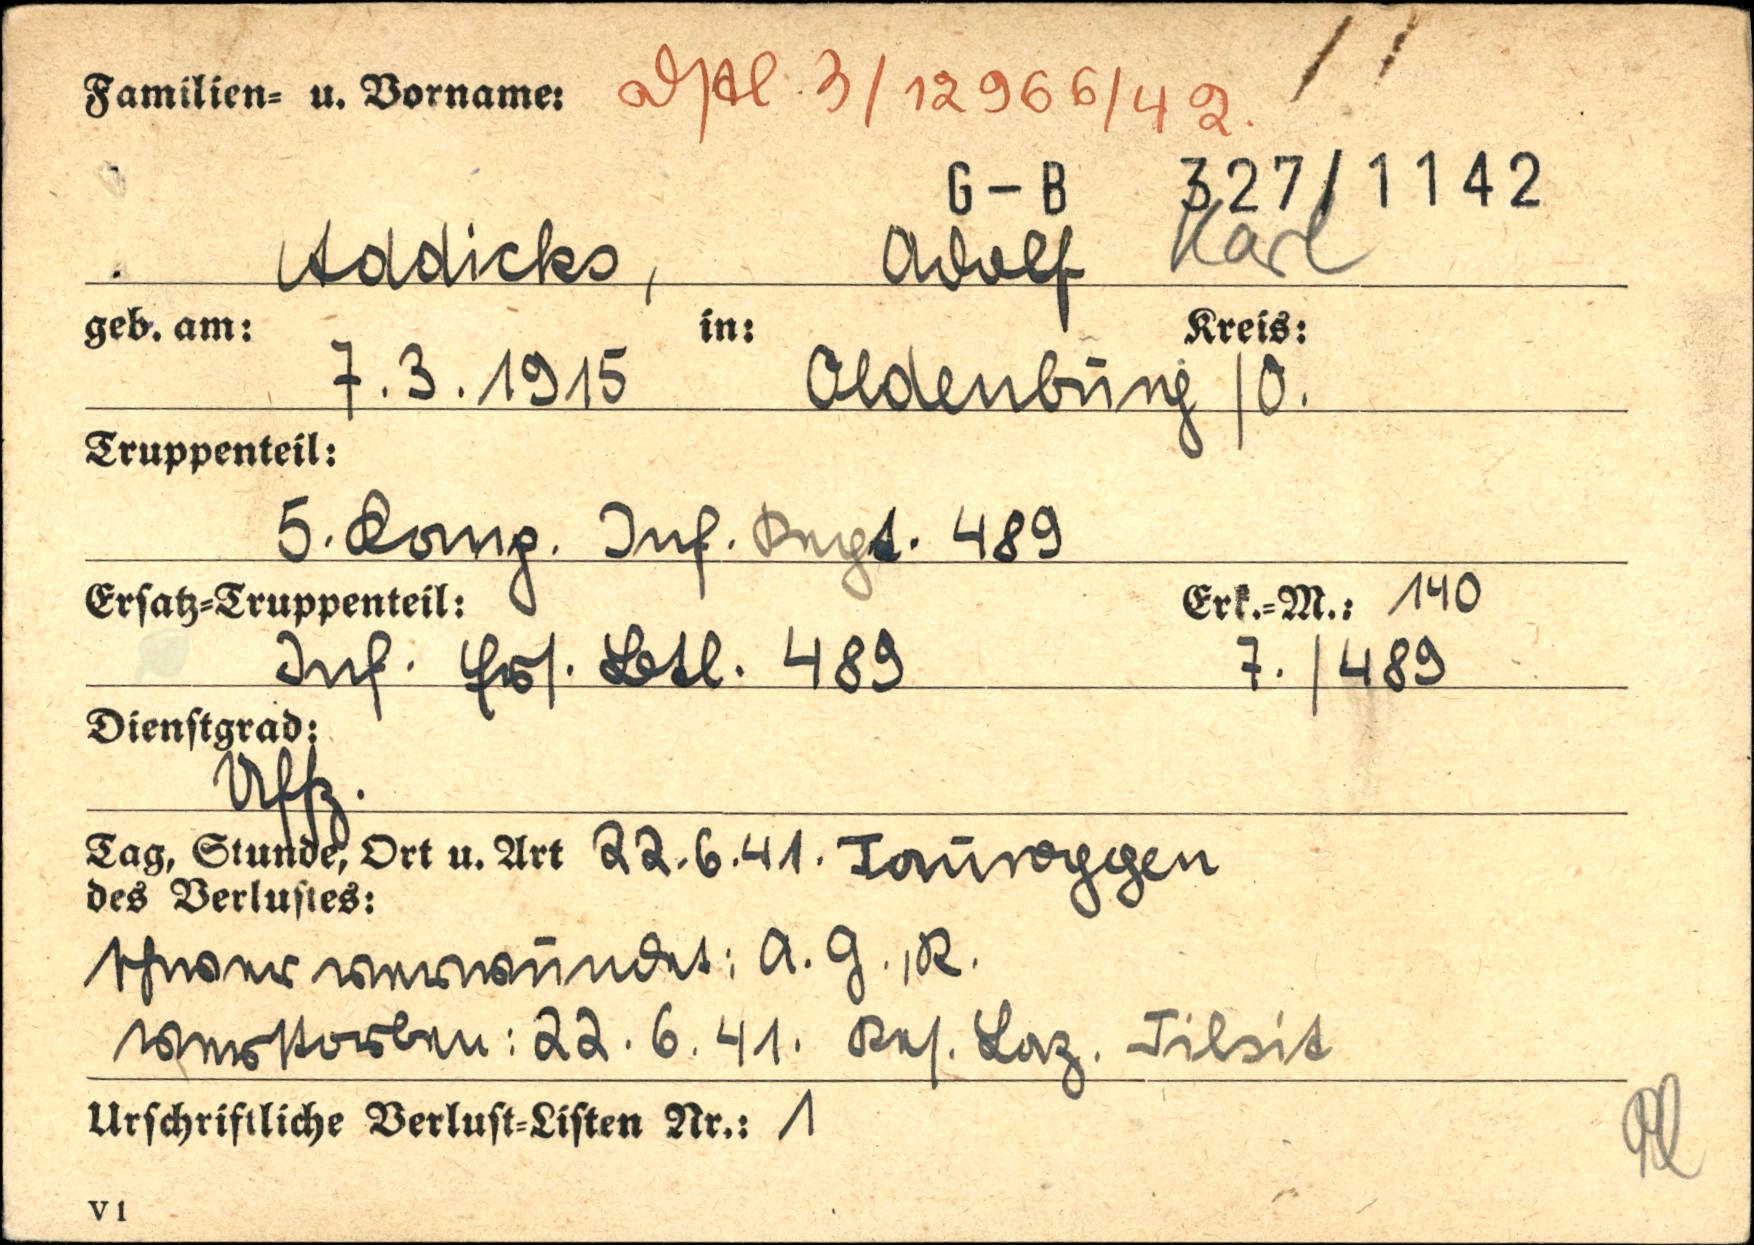 Familien- u. Vorname: 3/12966/42.
G-B 327/1142
Addicks, Adolf Karl
geb. am: in: Kreis:
7.3.1915 Oldenburg /O.
Truppenteil:
5. Komp. Inf. Regt. 489
Ersatz-Truppenteil: Erk.-M.: 140
Inf. Ers. Batl. 489 7./489
Dienstgrad:
Uffz.
Tag, Stunde, Ort u. Art 22.6.41. Tauroggen
des Verlustes:
schwer verwundet: A.G., R.
verstorben: 22.6.41. Res. Laz. Tilsit
Urschriftliche Verlust-Listen Nr.: 1
V 1